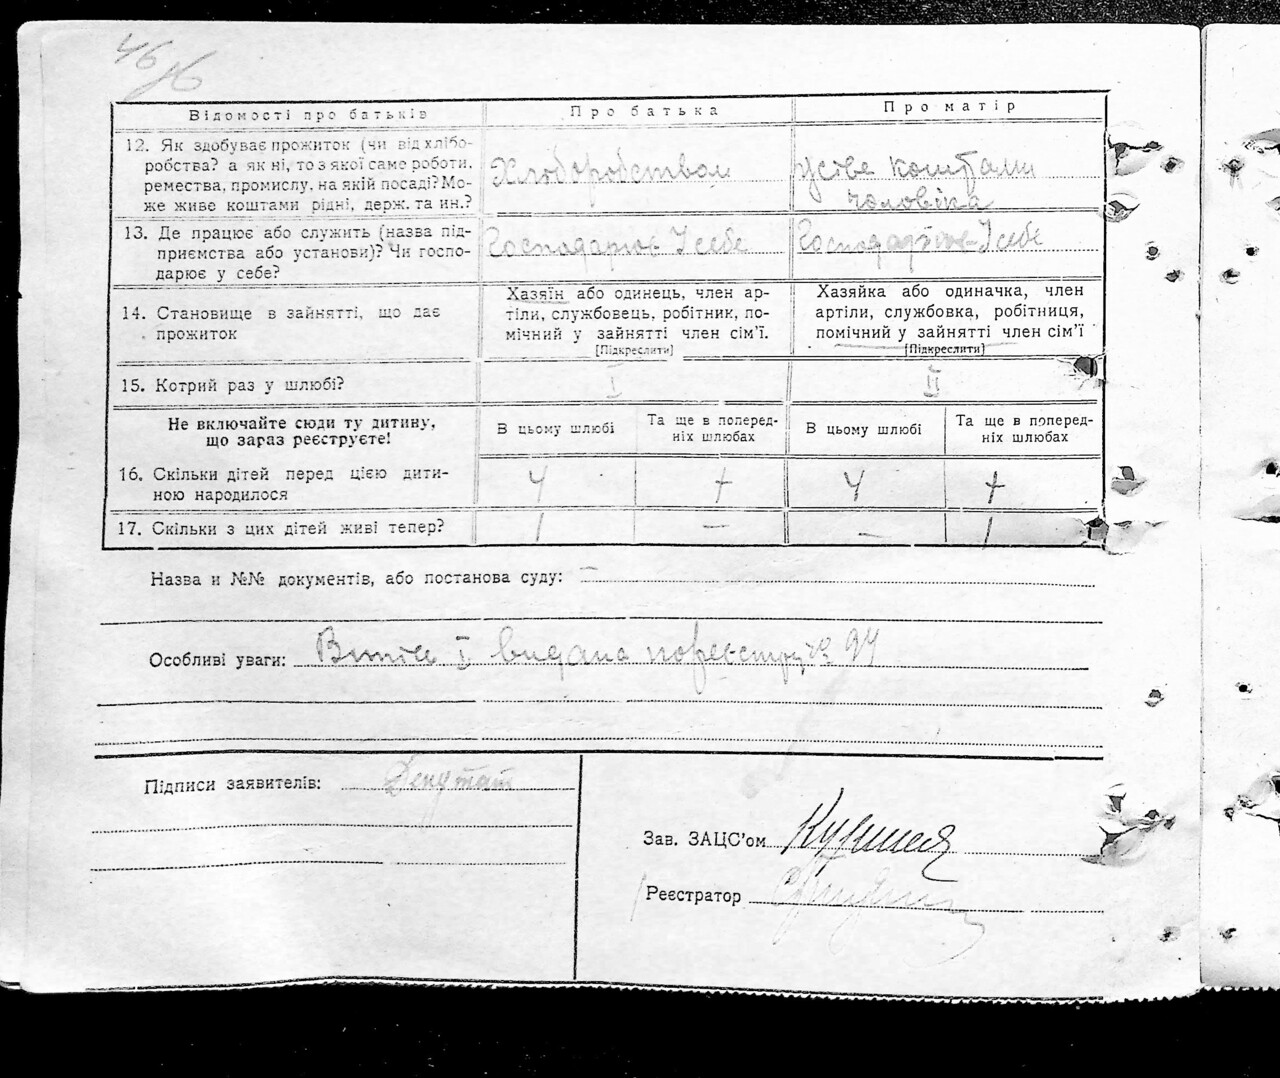 46
Відомості про батьків
Про батька
Про матір
12. Як здобуває прожиток (чи від хлібо-
робства? а як ні, то з якої саме роботи.
ремества, промислу, на якій посаді? Мо-
же живе коштами рідні, держ. та ин.?
Хліборобством
коштами
чоловіка
13. Де працює або служить (назва під-
приємства або установи)? Чи госпо-
дарює у себе?
Господарює У себе
Господарює У себе
14. Становище в зайнятті, що дає
прожиток
Хазяїн або одинець, член ар-
тілі, службовець, робітник, по-
мічний у зайнятті член сім'ї.
[Підкреслити]
Хазяйка або одиначка, член
артілі, службовка, робітниця,
помічний у зайнятті член сім'ї
[Підкреслити]
15. Котрий раз у шлюбі?
I
II
Не включайте сюди ту дитину,
що зараз реєструєте!
В цьому шлюбі
Та ще в поперед-
ніх шлюбах
В цьому шлюбі
Та ще в поперед-
ніх шлюбах
16. Скільки дітей перед цією дити-
ною народилося
4
+
4
+
17. Скільки з цих дітей живі тепер?
1
—
—
1
Назва и №№ документів, або постанова суду: —
Особливі уваги: I видана 94
Підписи заявителів: Депутат
Зав. ЗАЦС'ом
Реєстратор